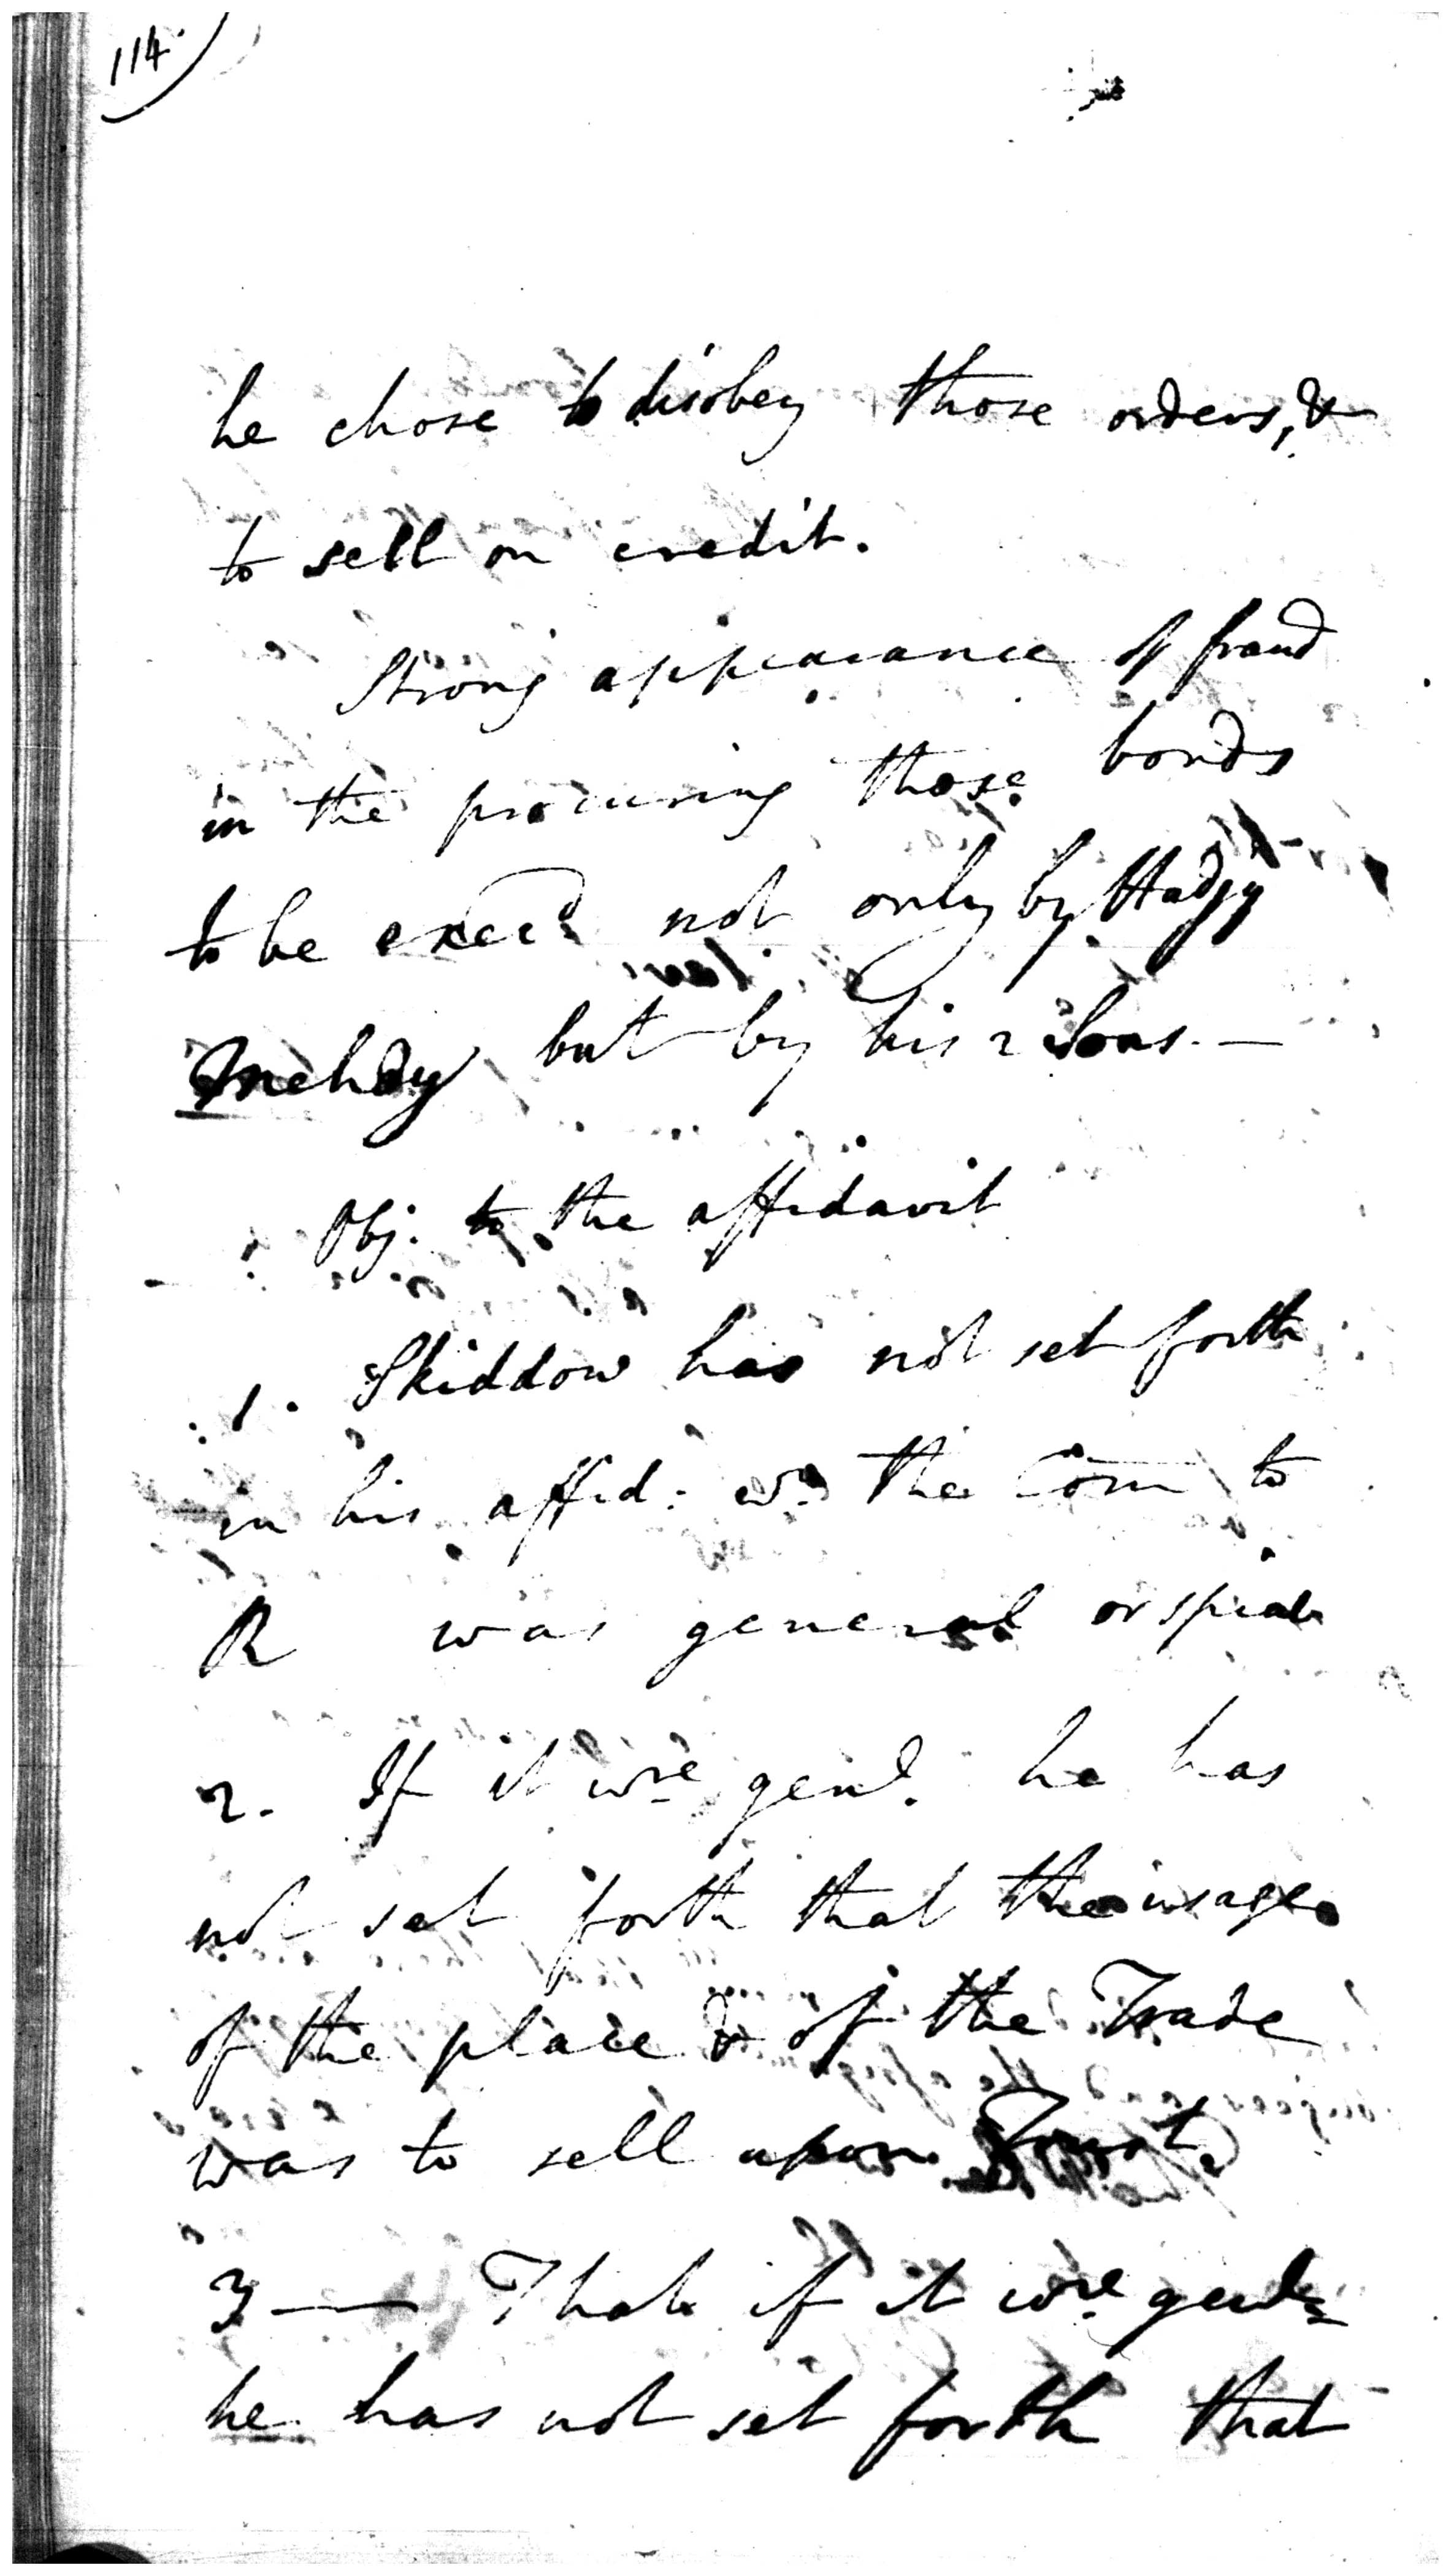 114
he chose to disobey those orders, &
to sell on credit.
Strong appearance of fraud
in the procuring those bonds
to be execd not only by Hadjy
Mehdy but by his 2 Sons. —
Obj. to the affidavit
1. Skiddow has not set forth
in his affid: wr the Com to
R was general or special
2. If it wre genl. he has
not set forth that the usage
of the place & of the Trade
was to sell upon Trust.
3 — That if it wre genl
he has not set forth that